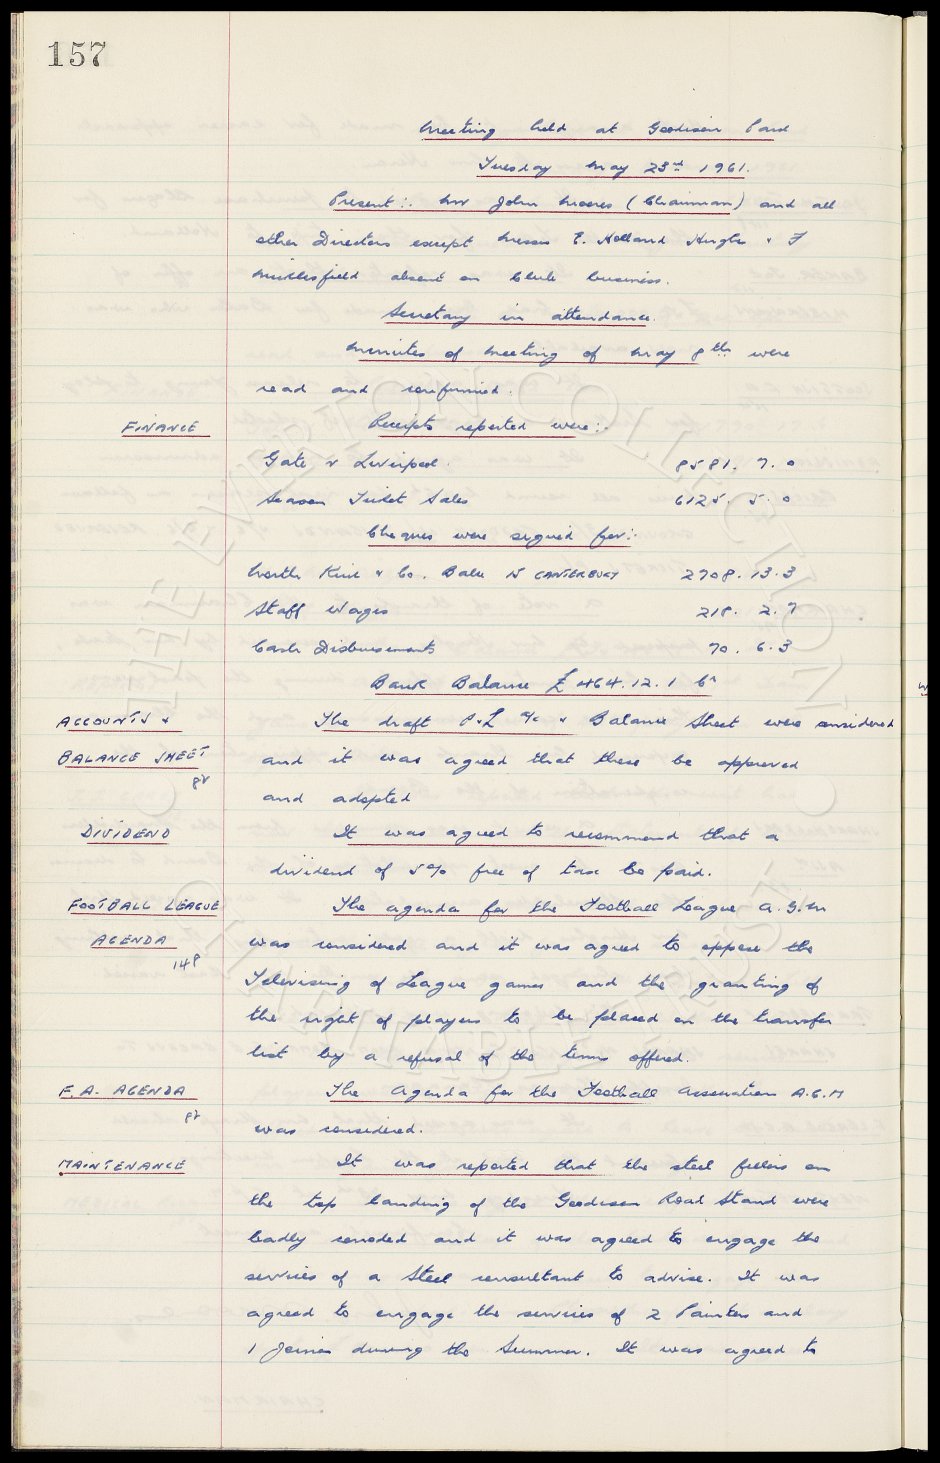 157
Meeting held at Goodison Park
Tuesday May 23rd 1961.
Present:- Mr John Moores (Chairman) and all
other Directors except Messrs E. Holland Hughes & F
Micklesfield absent on Club business.
Secretary in attendance.
Minutes of meeting of May 8th were
read and confirmed.
FINANCE Receipts reported were:-
Gate v Liverpool. 8581. 7. 0
Season Ticket Sales 6125. 5. 0
Cheques were signed for:-
North Kirk & Co. Bale N CANTERBURY 2708. 13. 3
Staff Wages 218. 2. 7
Cash Disbursements 70. 6. 3
Bank Balance £ 464. 12. 1 Cr
ACCOUNTS & The draft P & L a/c & Balance Sheet were considered
BALANCE SHEET and it was agreed that these be approved
82
and adopted
DIVIDEND It was agreed to recommend that a
dividend of 5% free of tax be paid.
FOOTBALL LEAGUE The agenda for the Football League A.G.M
AGENDA was considered and it was agreed to oppose the
148 Televising of League games and the granting of
the right of players to be placed on the transfer
list by a refusal of the terms offered.
F.A. AGENDA The Agenda for the Football Association A.G.M
82 was considered.
MAINTENANCE It was reported that the steel fillers on
the top landing of the Goodison Road Stand were
badly corroded and it was agreed to engage the
services of a Steel consultant to advise. It was
agreed to engage the services of 2 Painters and
1 Joiner during the Summer. It was agreed to
EVERTON COLLECTION
CHARITABLE TRUST